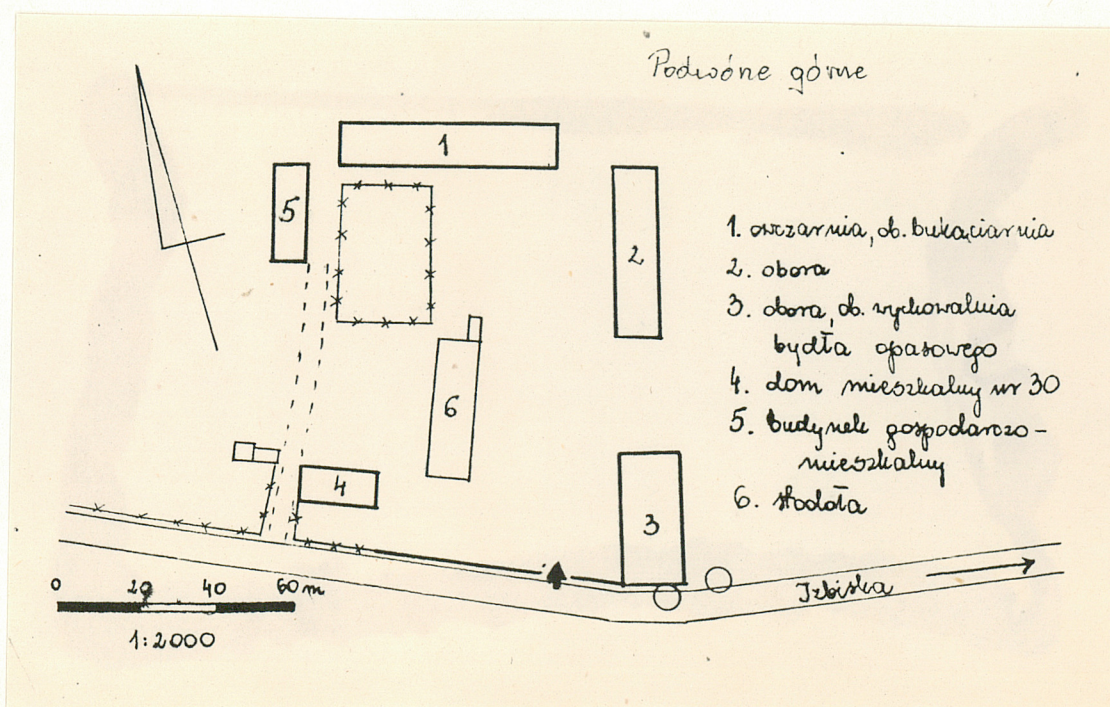 Podwórze górne
1
5
2
6
4
3
1. owczarnia, ob. bukaciarnia
2. obora
3. obora, ob. wychowalnia
bydła opasowego
4. dom mieszkalny nr 30
5. budynek gospodarczo-
mieszkalny
6. stodoła
Izbiska
0 20 40 60 m
1:2000